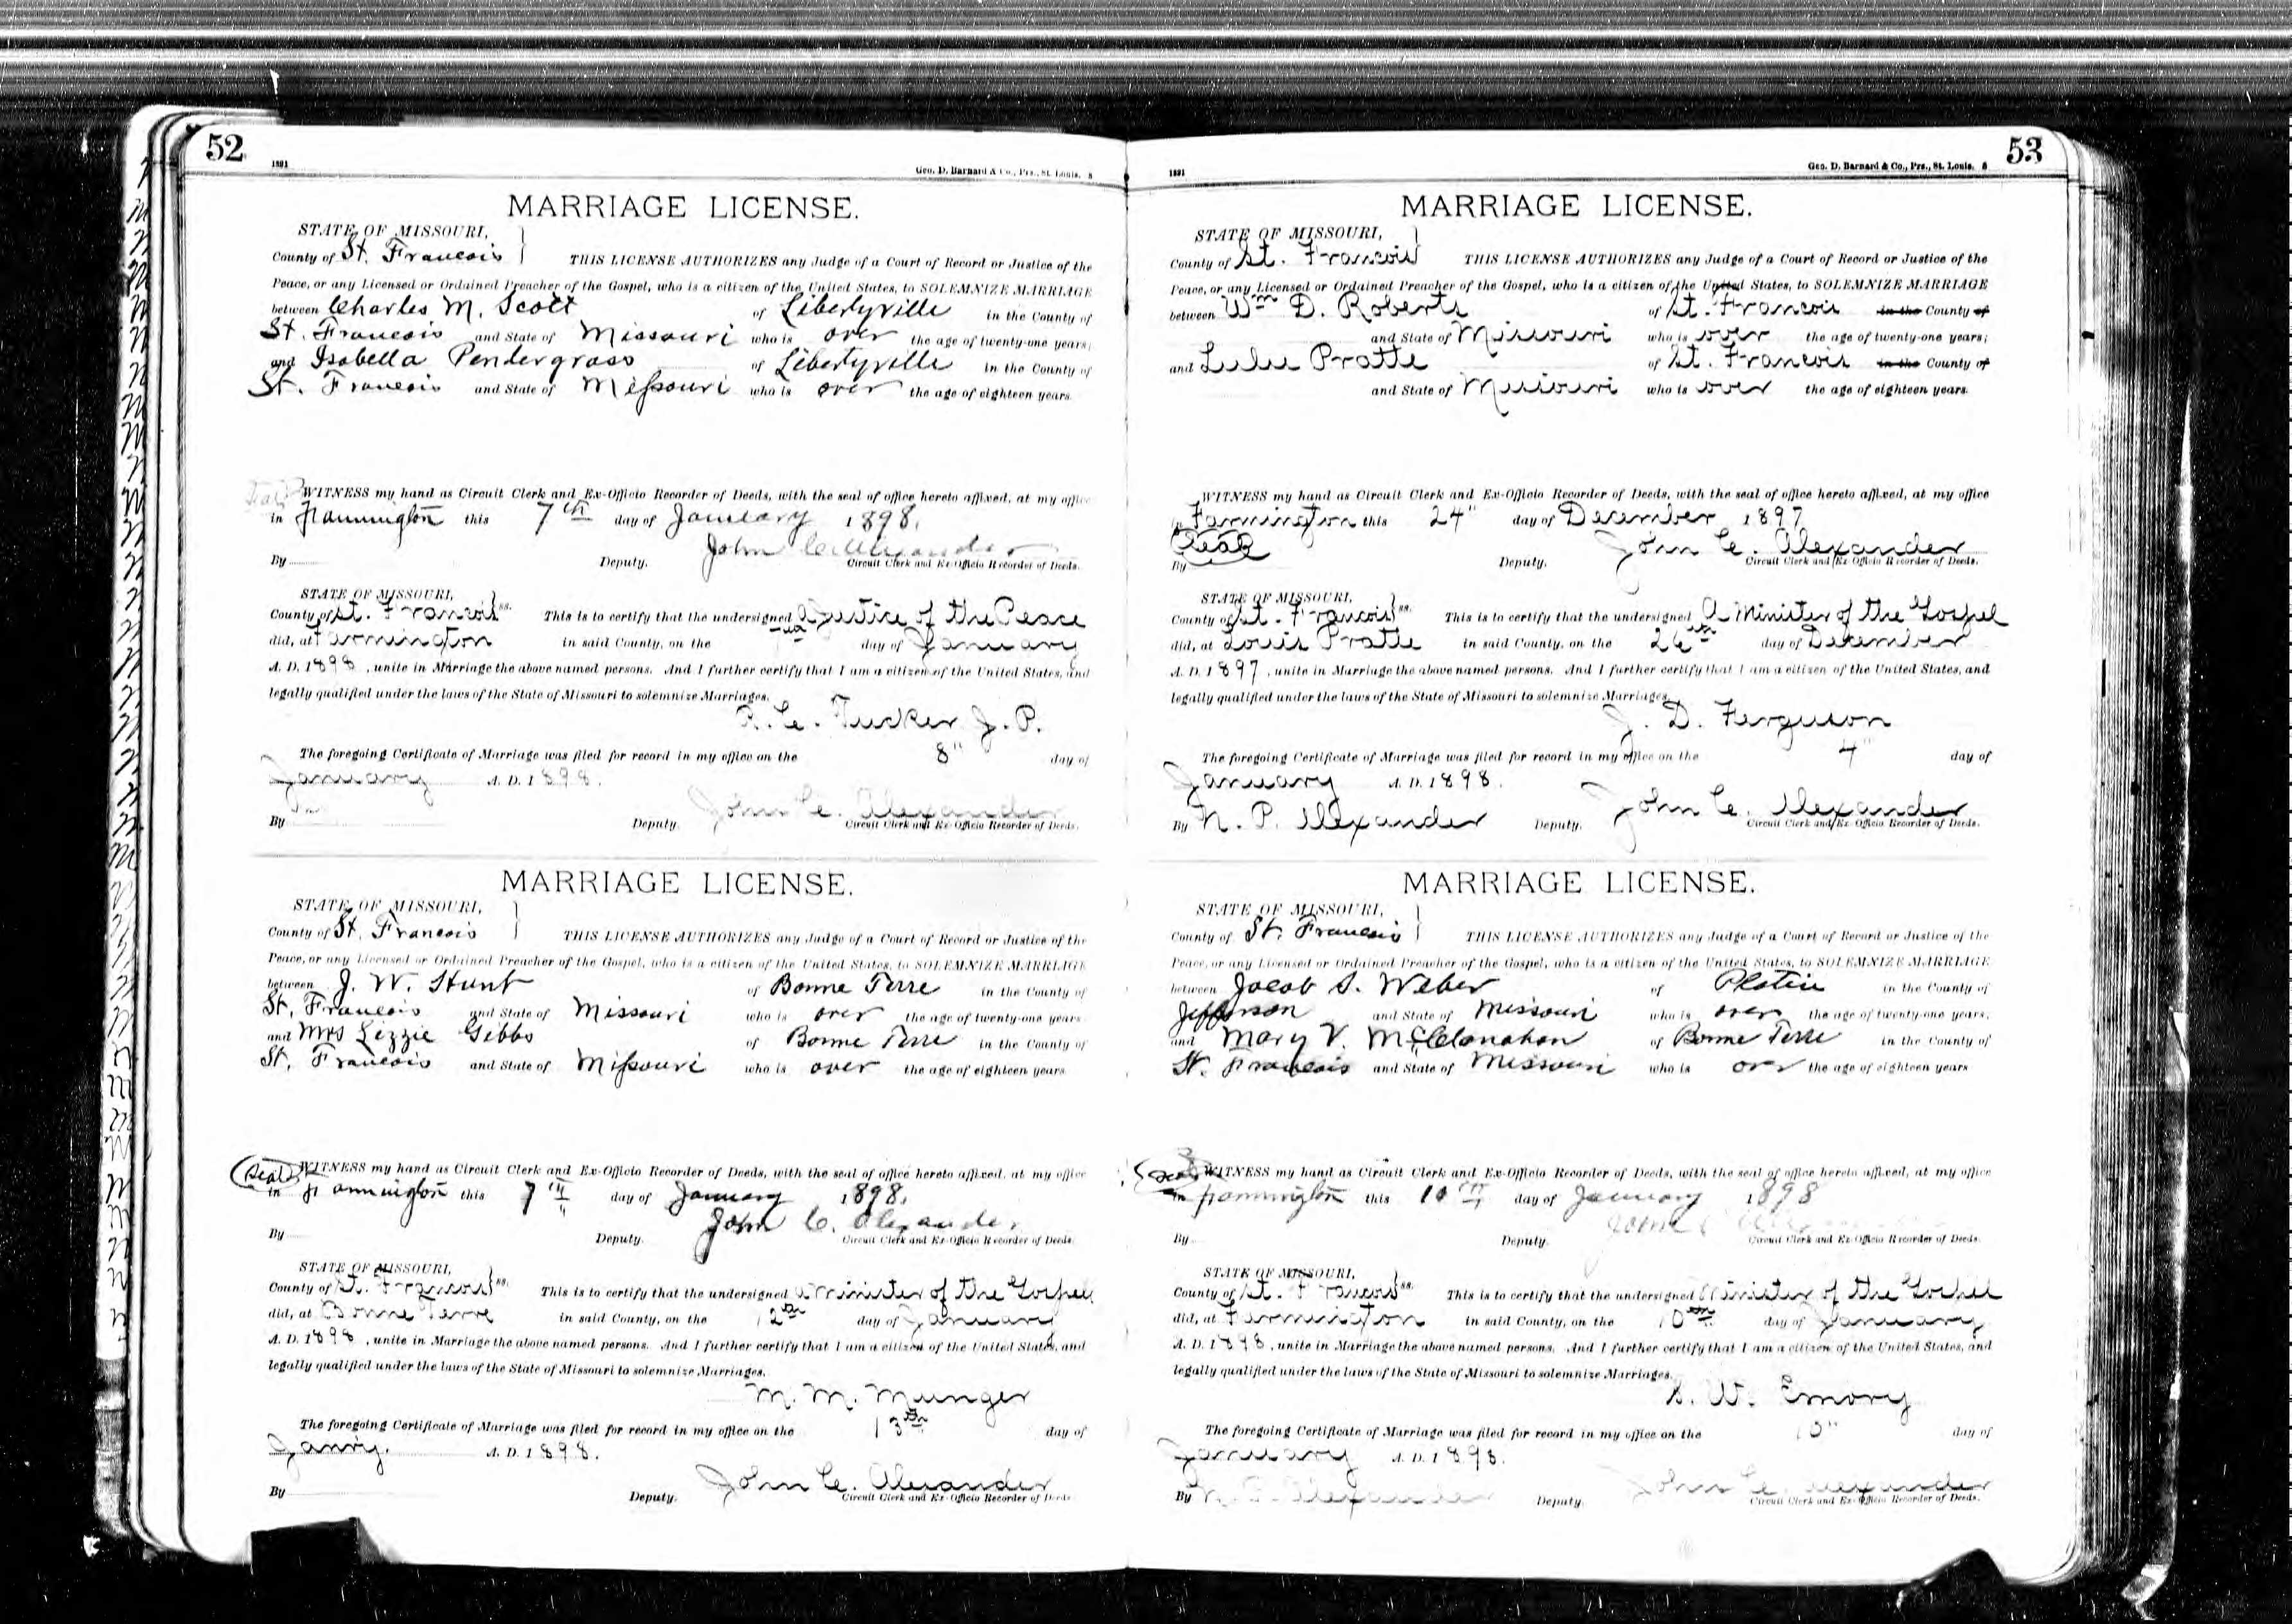 52
1891
Geo. D. Barnard & Co., Prs., St. Louis. 8
MARRIAGE LICENSE.
STATE OF MISSOURI,
County of St. Francois } THIS LICENSE AUTHORIZES any Judge of a Court of Record or Justice of the
Peace, or any Licensed or Ordained Preacher of the Gospel, who is a citizen of the United States, to SOLEMNIZE MARRIAGE
between Charles M. Scott of Libertyville in the County of
St. Francois and State of Missouri who is over the age of twenty-one years;
and Isabella Pendergrass of Libertyville in the County of
St. Francois and State of Missouri who is over the age of eighteen years.
WITNESS my hand as Circuit Clerk and Ex-Officio Recorder of Deeds, with the seal of office hereto affixed, at my office
in Farmington this 7th day of January 1898.
John C. Alexander
By Deputy. Circuit Clerk and Ex-Officio Recorder of Deeds.
STATE OF MISSOURI,
County of St. Francois } ss. This is to certify that the undersigned a Justice of the Peace
did, at Farmington in said County, on the 7th day of January
A. D. 1898, unite in Marriage the above named persons. And I further certify that I am a citizen of the United States, and
legally qualified under the laws of the State of Missouri to solemnize Marriages.
R. C. Tucker J. P.
The foregoing Certificate of Marriage was filed for record in my office on the 8" day of
January A. D. 1898.
John C. Alexander
By Deputy. Circuit Clerk and Ex-Officio Recorder of Deeds.
MARRIAGE LICENSE.
STATE OF MISSOURI,
County of St. Francois } THIS LICENSE AUTHORIZES any Judge of a Court of Record or Justice of the
Peace, or any Licensed or Ordained Preacher of the Gospel, who is a citizen of the United States, to SOLEMNIZE MARRIAGE
between J. W. Hunt of Bonne Terre in the County of
St. Francois and State of Missouri who is over the age of twenty-one years
and Mrs Lizzie Gibbs of Bonne Terre in the County of
St. Francois and State of Missouri who is over the age of eighteen years
(Seal) WITNESS my hand as Circuit Clerk and Ex-Officio Recorder of Deeds, with the seal of office hereto affixed, at my office
in Farmington this 7th day of January 1898.
John C. Alexander
By Deputy. Circuit Clerk and Ex-Officio Recorder of Deeds.
STATE OF MISSOURI,
County of St. Francois } ss. This is to certify that the undersigned a Minister of the Gospel
did, at Bonne Terre in said County, on the 12th day of January
A. D. 1898, unite in Marriage the above named persons. And I further certify that I am a citizen of the United States, and
legally qualified under the laws of the State of Missouri to solemnize Marriages.
M. M. Munger
The foregoing Certificate of Marriage was filed for record in my office on the 13th day of
Janry. A. D. 1898.
John C. Alexander
By Deputy. Circuit Clerk and Ex-Officio Recorder of Deeds
53
1891
Geo. D. Barnard & Co., Prs., St. Louis. 8
MARRIAGE LICENSE.
STATE OF MISSOURI,
County of St. Francois } THIS LICENSE AUTHORIZES any Judge of a Court of Record or Justice of the
Peace, or any Licensed or Ordained Preacher of the Gospel, who is a citizen of the United States, to SOLEMNIZE MARRIAGE
between Wm D. Roberts of St. Francois in the County of
and State of Missouri who is over the age of twenty-one years;
and Lulu Pratte of St. Francois in the County of
and State of Missouri who is over the age of eighteen years.
WITNESS my hand as Circuit Clerk and Ex-Officio Recorder of Deeds, with the seal of office hereto affixed, at my office
in Farmington this 24" day of December 1897
(Seal) John C. Alexander
By Deputy. Circuit Clerk and Ex-Officio Recorder of Deeds.
STATE OF MISSOURI,
County of St. Francois } ss. This is to certify that the undersigned A Minister of the Gospel
did, at Louis Pratte in said County, on the 26th day of December
A. D. 1897, unite in Marriage the above named persons. And I further certify that I am a citizen of the United States, and
legally qualified under the laws of the State of Missouri to solemnize Marriages.
J. D. Ferguson
The foregoing Certificate of Marriage was filed for record in my office on the 4" day of
January A. D. 1898.
John C. Alexander
By N. P. Alexander Deputy. Circuit Clerk and Ex-Officio Recorder of Deeds.
MARRIAGE LICENSE.
STATE OF MISSOURI,
County of St. Francois } THIS LICENSE AUTHORIZES any Judge of a Court of Record or Justice of the
Peace, or any Licensed or Ordained Preacher of the Gospel, who is a citizen of the United States, to SOLEMNIZE MARRIAGE
between Jacob S. Weber of Plattin in the County of
Jefferson and State of Missouri who is over the age of twenty-one years;
and Mary V. McClanahan of Bonne Terre in the County of
St. Francois and State of Missouri who is over the age of eighteen years
(Seal) WITNESS my hand as Circuit Clerk and Ex-Officio Recorder of Deeds, with the seal of office hereto affixed, at my office
in Farmington this 10th day of January 1898
John C
By Deputy. Circuit Clerk and Ex-Officio Recorder of Deeds.
STATE OF MISSOURI,
County of St. Francois } ss. This is to certify that the undersigned Minister of the Gospel
did, at Farmington in said County, on the 10th day of January
A. D. 1898, unite in Marriage the above named persons. And I further certify that I am a citizen of the United States, and
legally qualified under the laws of the State of Missouri to solemnize Marriages.
S. W. Emory
The foregoing Certificate of Marriage was filed for record in my office on the 10" day of
January A. D. 1898.
John C. Alexander
By N. P. Alexander Deputy. Circuit Clerk and Ex-Officio Recorder of Deeds.